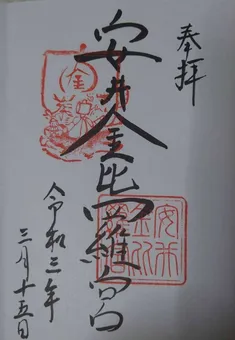 奉拝
安井金比羅宮
令和三年
三月十五日